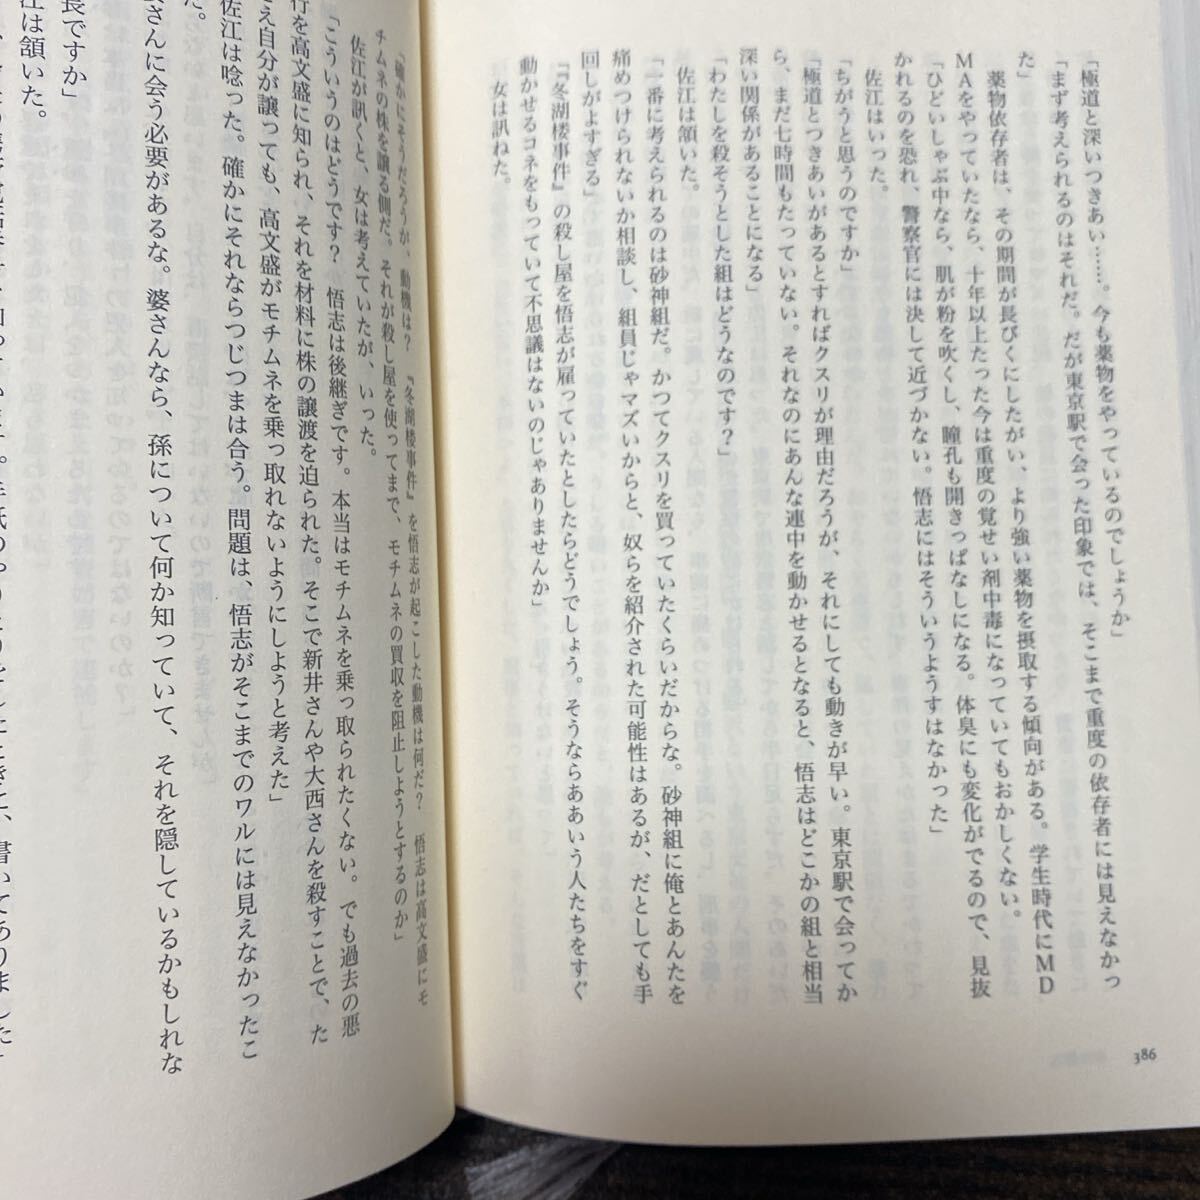 「極道と深いつきあい……。今も薬物をやっているのでしょうか」
「まず考えられるのはそれだ。だが東京駅で会った印象では、そこまで重度の依存者には見えなかっ
た」
薬物依存者は、その期間が長びくにしたがい、より強い薬物を摂取する傾向がある。学生時代にMD
MAをやっていたなら、十年以上たった今は重度の覚せい剤中毒になっていてもおかしくない。
「ひどいしゃぶ中なら、肌が粉を吹くし、瞳孔も開きっぱなしになる。体臭にも変化がでるので、見抜
かれるのを恐れ、警察官には決して近づかない。悟志にはそういうようすはなかった」
佐江はいった。
「ちがうと思うのですか」
「極道とつきあいがあるとすればクスリが理由だろうが、それにしても動きが早い。東京駅で会ってか
ら、まだ七時間もたっていない。それなのにあんな連中を動かせるとなると、悟志はどこかの組と相当
深い関係があることになる」
「わたしを殺そうとした組はどうなのです？」
佐江は頷いた。
「一番に考えられるのは砂神組だ。かつてクスリを買っていたくらいだからな。砂神組に俺とあんたを
痛めつけられないか相談し、組員じゃマズいからと、奴らを紹介された可能性はあるが、だとしても手
回しがよすぎる」
「『冬湖楼事件』の殺し屋を悟志が雇っていたとしたらどうでしょう。そうならああいう人たちをすぐ
動かせるコネをもっていて不思議はないのじゃありませんか」
女は訊ねた。
386
「確かにそうだろうが、動機は？　『冬湖楼事件』を悟志が起こした動機は何だ？　悟志は高文盛にモ
チムネの株を譲る側だ。それが殺し屋を使ってまで、モチムネの買収を阻止しようとするのか」
佐江が訊くと、女は考えていたが、いった。
「こういうのはどうです？　悟志は後継ぎです。本当はモチムネを乗っ取られたくない。でも過去の悪
行を高文盛に知られ、それを材料に株の譲渡を迫られた。そこで新井さんや大西さんを殺すことで、た
え自分が譲っても、高文盛がモチムネを乗っ取れないようにしようと考えた」
佐江は唸った。確かにそれならつじつまは合う。問題は、悟志がそこまでのワルには見えなかったこ
だ。
さんに会う必要があるな。婆さんなら、孫について何か知っていて、それを隠しているかもしれな
長ですか」
江は頷いた。
書いてありました」